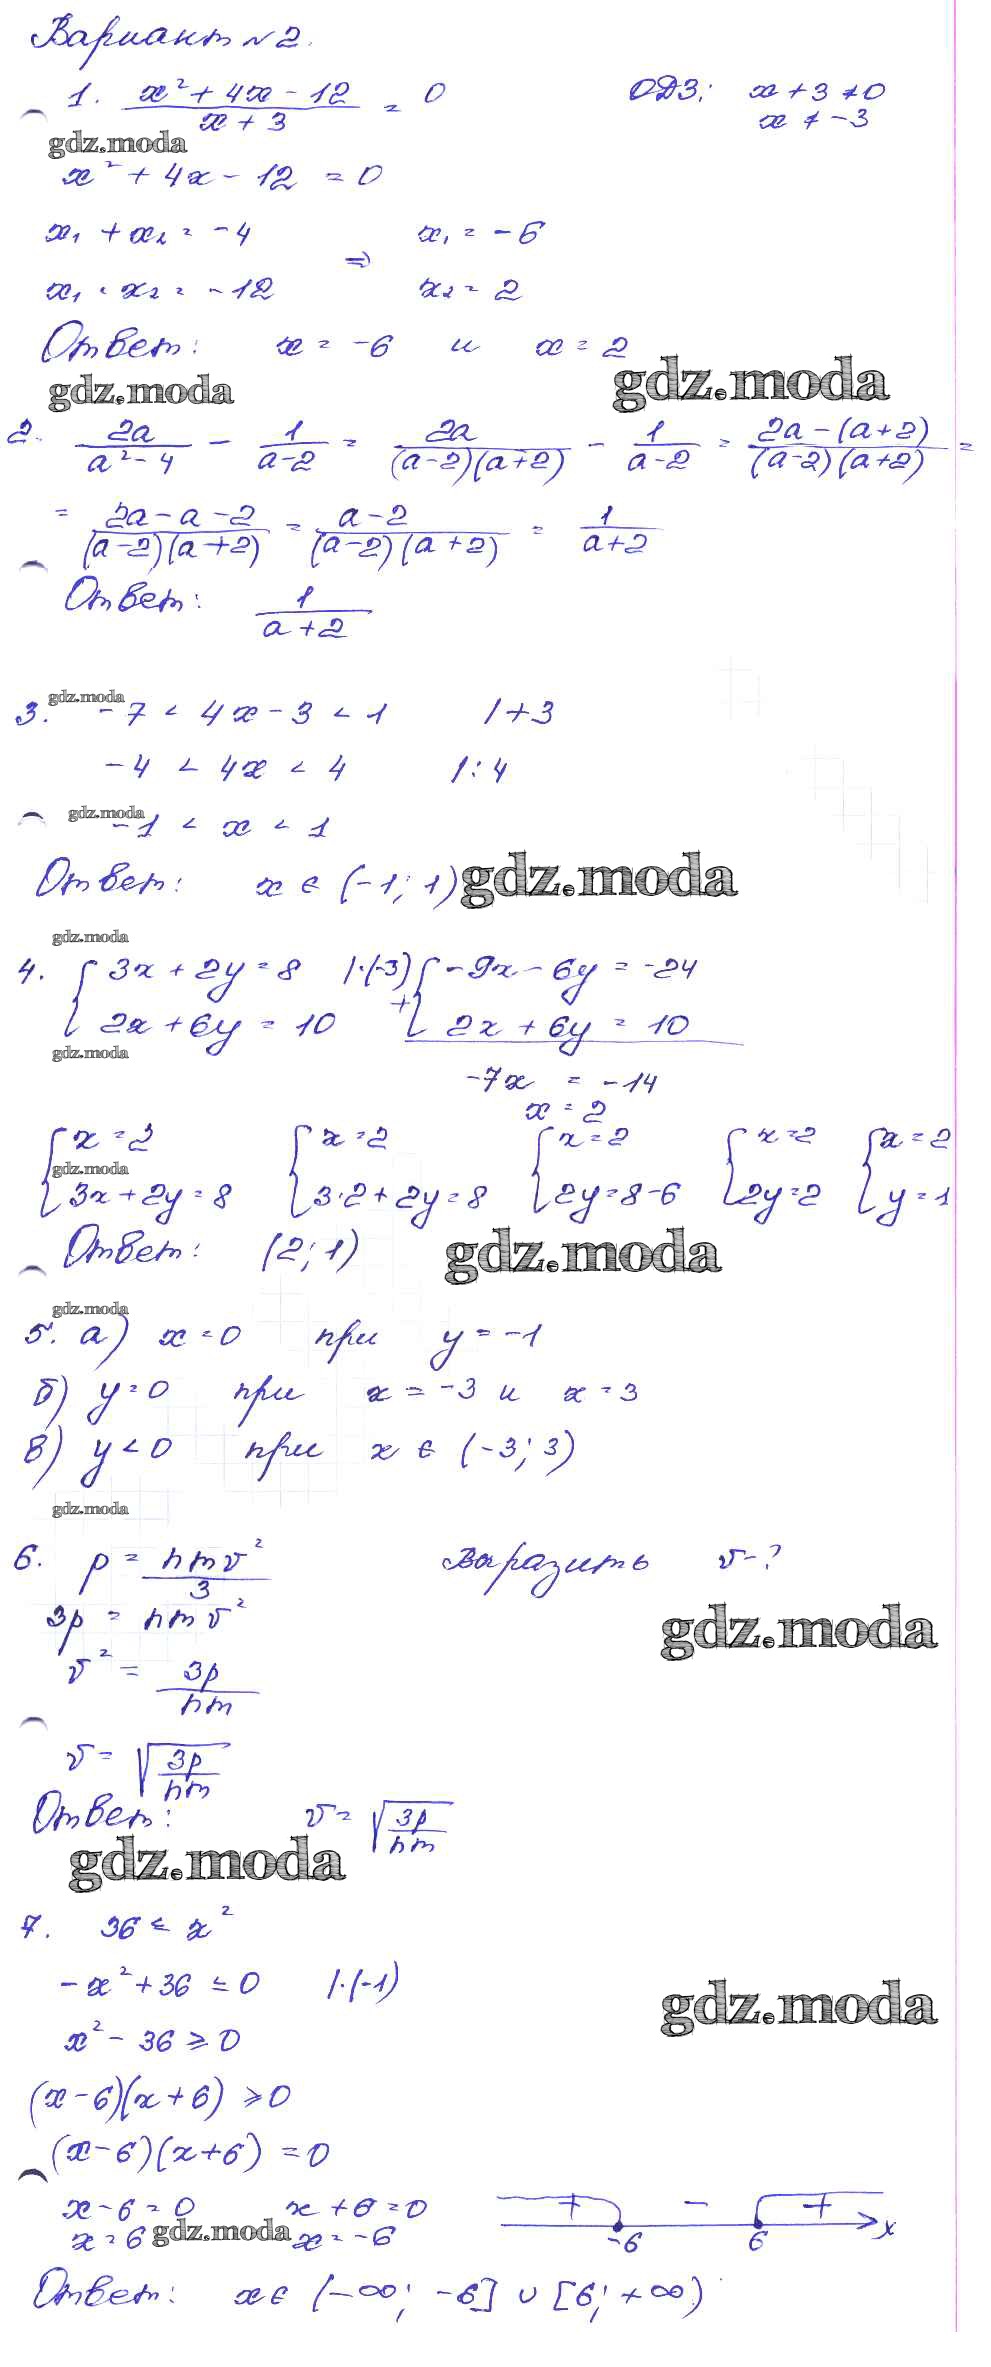 Вариант №2.
1. (x² + 4x - 12)/(x + 3) = 0   ОДЗ: x + 3 ≠ 0
x ≠ -3
gdz.moda
x² + 4x - 12 = 0
x₁ + x₂ = -4   x₁ = -6
⇒
x₁ · x₂ = -12   x₂ = 2
Ответ: x = -6 и x = 2
gdz.moda   gdz.moda
2. 2a/(a² - 4) - 1/(a-2) = 2a/((a-2)(a+2)) - 1/(a-2) = (2a-(a+2))/((a-2)(a+2)) =
= (2a-a-2)/((a-2)(a+2)) = (a-2)/((a-2)(a+2)) = 1/(a+2)
Ответ: 1/(a+2)
gdz.moda
3. -7 < 4x - 3 < 1   | +3
-4 < 4x < 4   | : 4
gdz.moda
-1 < x < 1
Ответ: x ∈ (-1; 1) gdz.moda
gdz.moda
4. { 3x + 2y = 8   |·(-3)   { -9x - 6y = -24
+
2x + 6y = 10   2x + 6y = 10
gdz.moda
-7x = -14
x = 2
{ x = 2   { x = 2   { x = 2   { x = 2   { x = 2
gdz.moda
3x + 2y = 8   3·2 + 2y = 8   2y = 8-6   2y = 2   y = 1
Ответ: (2; 1) gdz.moda
gdz.moda
5. а) x = 0 при y = -1
б) y = 0 при x = -3 и x = 3
в) y < 0 при x ∈ (-3; 3)
gdz.moda
6. p = nmv²/3   Выразить v - ?
3p = nmv²
gdz.moda
v² = 3p/nm
v = √(3p/nm)
Ответ: v = √(3p/nm)
gdz.moda
7. 36 ≤ x²
-x² + 36 ≤ 0   |·(-1)
gdz.moda
x² - 36 ≥ 0
(x-6)(x+6) ≥ 0
(x-6)(x+6) = 0
x - 6 = 0   x + 6 = 0   + - +
x = 6 gdz.moda x = -6   -6   6   x
Ответ: x ∈ (-∞; -6] ∪ [6; +∞)